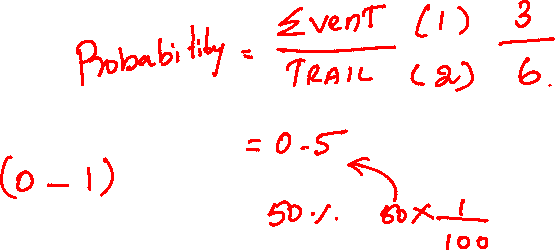 Probability = Event (1) 3
TRAIL (2) 6.
= 0.5
(0 - 1)
50 % 50 × 1
100